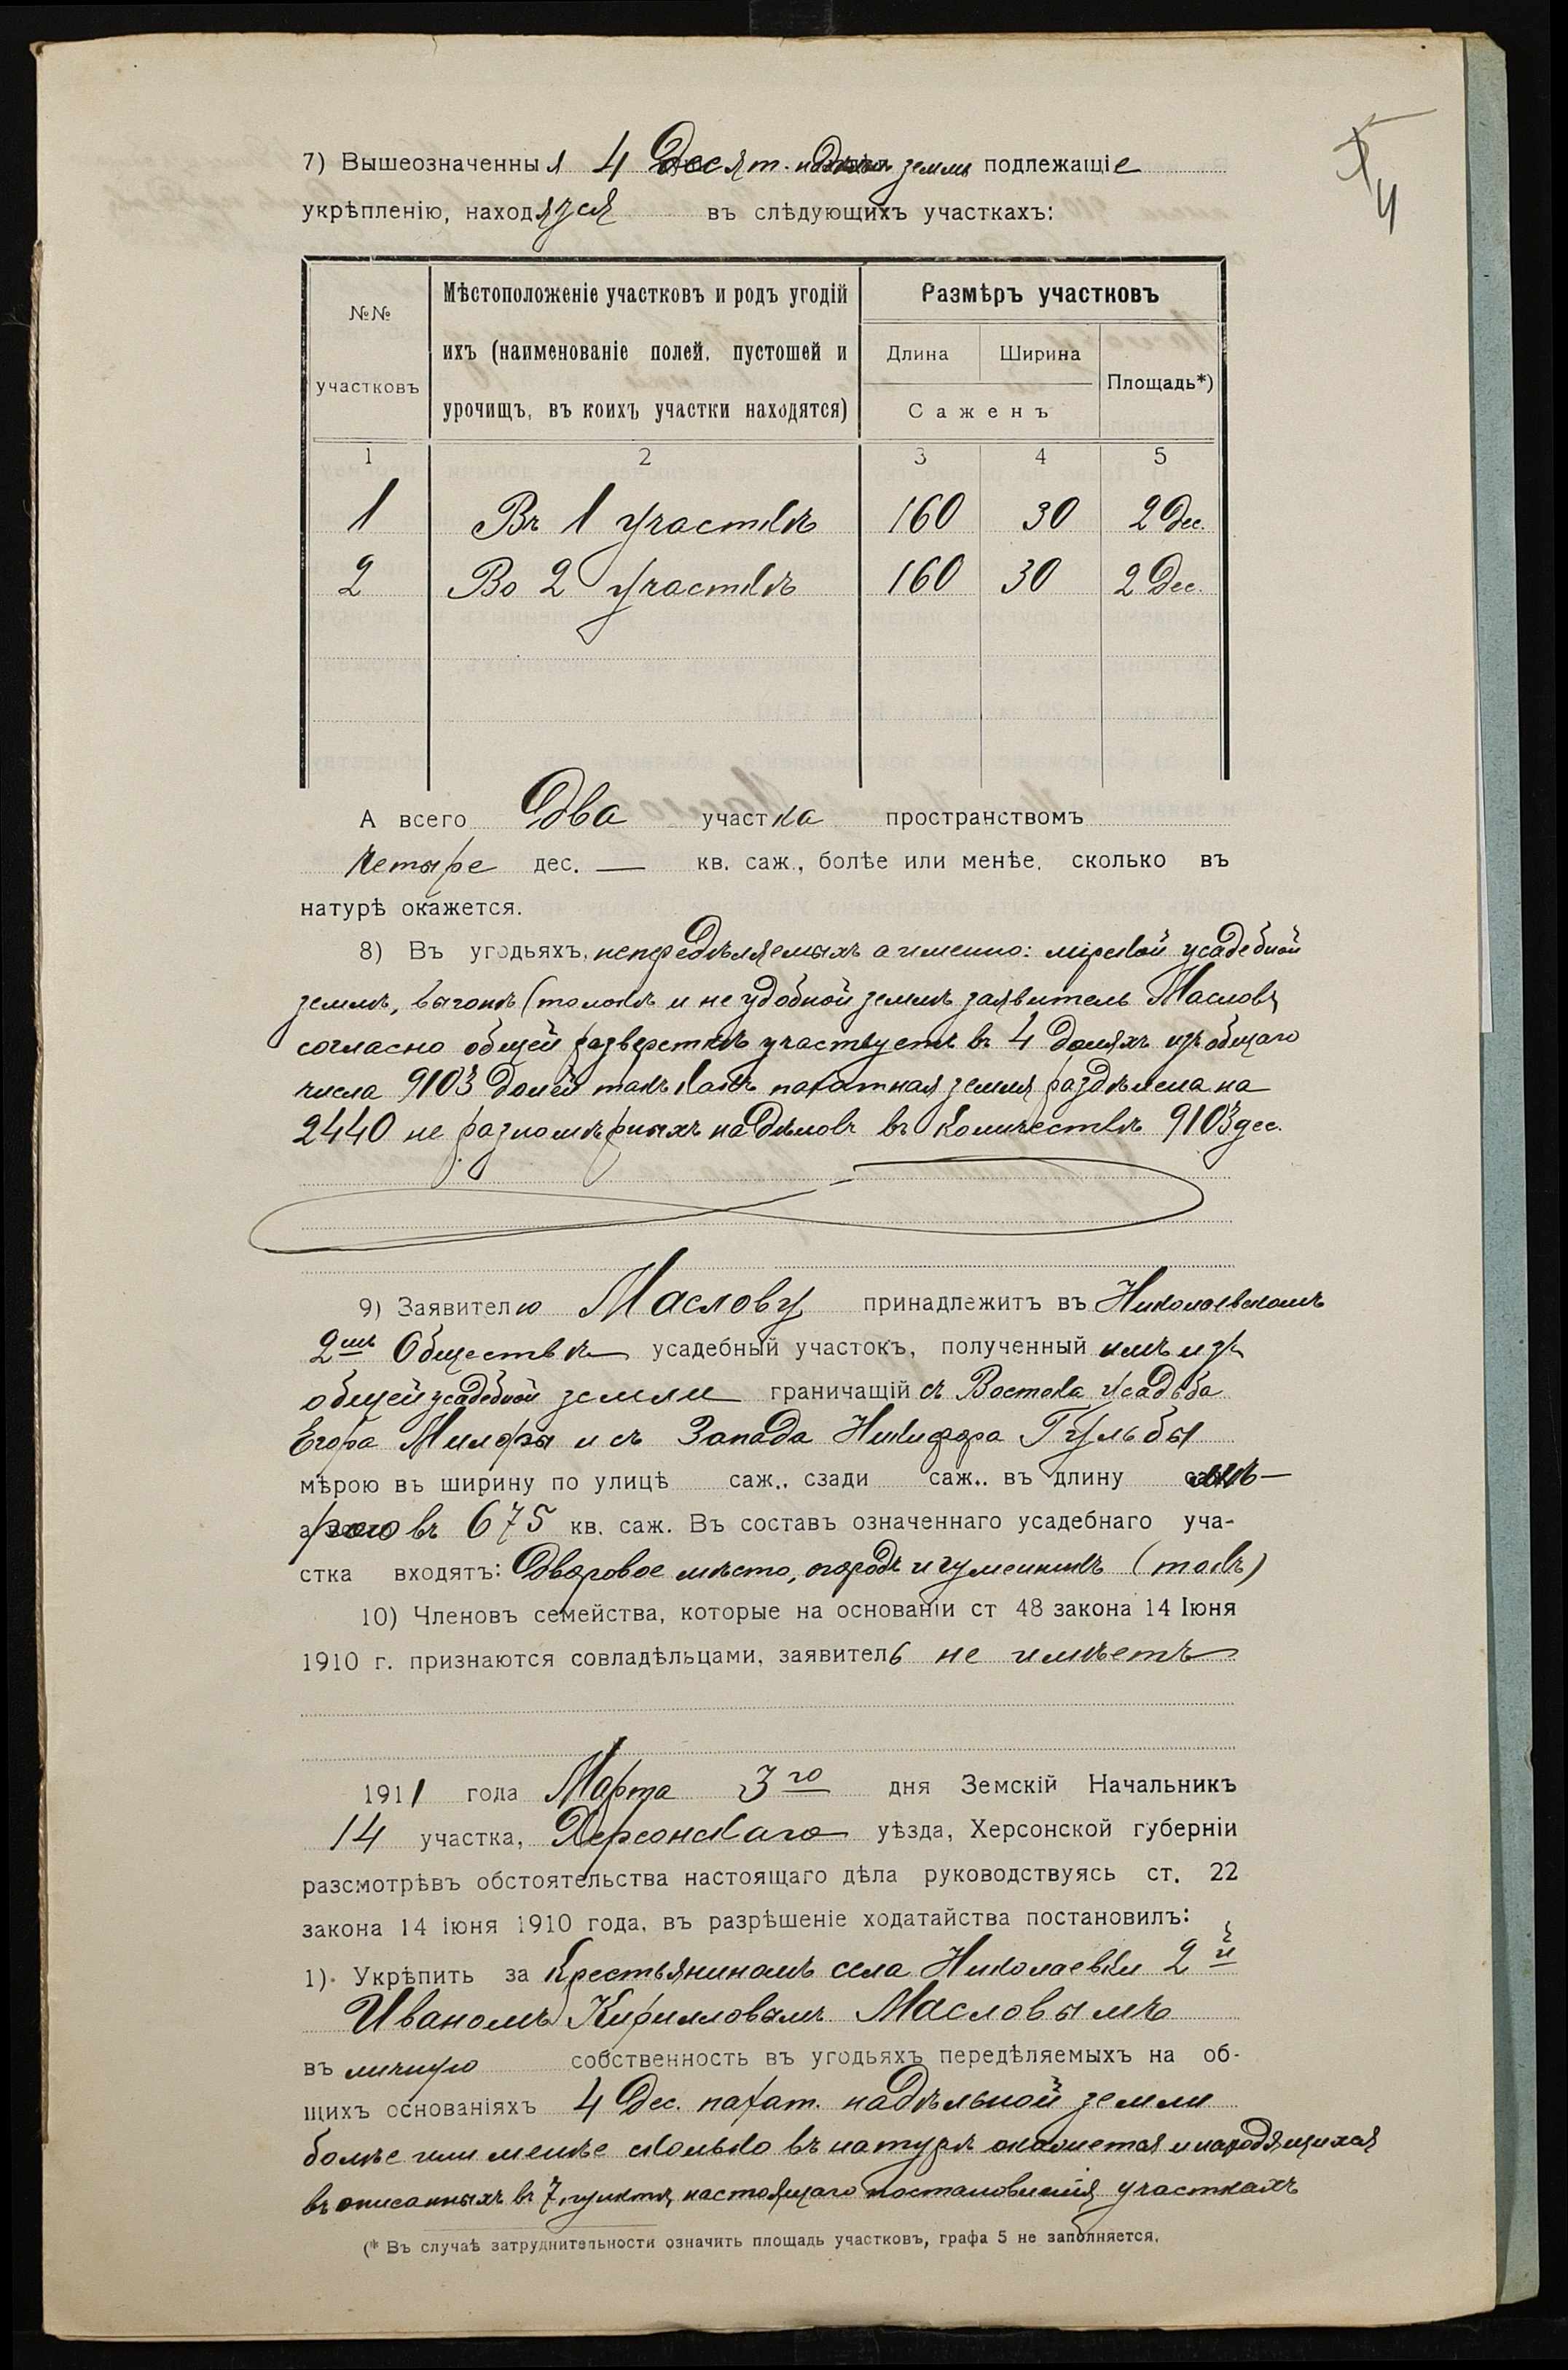 5
4
7) Вышеозначенныя 4 Десят. земли подлежащіе
укрѣпленію, находятся въ слѣдующихъ участкахъ:
№№ участковъ
Мѣстоположеніе участковъ и родъ угодій
ихъ (наименованіе полей, пустошей и
урочищъ, въ коихъ участки находятся)
Размѣръ участковъ
Длина Ширина
Саженъ
Площадь*)
1 2 3 4 5
1 Въ 1 участкѣ 160 30 2 Дес.
2 Во 2 участкѣ 160 30 2 Дес.
А всего Два участка пространствомъ
Четыре дес. — кв. саж., болѣе или менѣе, сколько въ
натурѣ окажется.
8) Въ угодьяхъ, непередѣляемыхъ а именно: мірской усадебной
землѣ, выгонѣ (толокѣ и не удобной землѣ заявитель Масловъ
согласно общей разверсткѣ участвуетъ въ 4 доляхъ изъ общаго
числа 9103 долей такъ какъ пахатная земля раздѣлена на
2440 не разномѣрныхъ надѣловъ въ количествѣ 9103 дес.
9) Заявителю Маслову принадлежитъ въ Николаевскомъ
2мъ Обществѣ усадебный участокъ, полученный имъ изъ
общей усадебной земли граничащій съ Востока усадьба
Егора и съ Запада Никифора Гульбы
мѣрою въ ширину по улицѣ саж., сзади саж., въ длину мѣ-
рою въ 675 кв. саж. Въ составъ означеннаго усадебнаго уча-
стка входятъ: Дворовое мѣсто, огородъ и гуменникъ (токъ)
10) Членовъ семейства, которые на основаніи ст 48 закона 14 Іюня
1910 г. признаются совладѣльцами, заявитель не имѣетъ
1911 года Марта 3го дня Земскій Начальникъ
14 участка, Херсонскаго уѣзда, Херсонской губерніи
разсмотрѣвъ обстоятельства настоящаго дѣла руководствуясь ст. 22
закона 14 іюня 1910 года, въ разрѣшеніе ходатайства постановилъ:
1) Укрѣпить за Крестьяниномъ села Николаевки 2й
Иваномъ Кирилловымъ Масловымъ
въ личную собственность въ угодьяхъ передѣляемыхъ на об-
щихъ основаніяхъ 4 Дес. пахат. надѣльной земли
болѣе или менѣе сколько въ натурѣ окажется и находящихся
въ описанныхъ въ 7 пунктѣ настоящаго постановленія участкахъ
(* Въ случаѣ затруднительности означить площадь участковъ, графа 5 не заполняется.